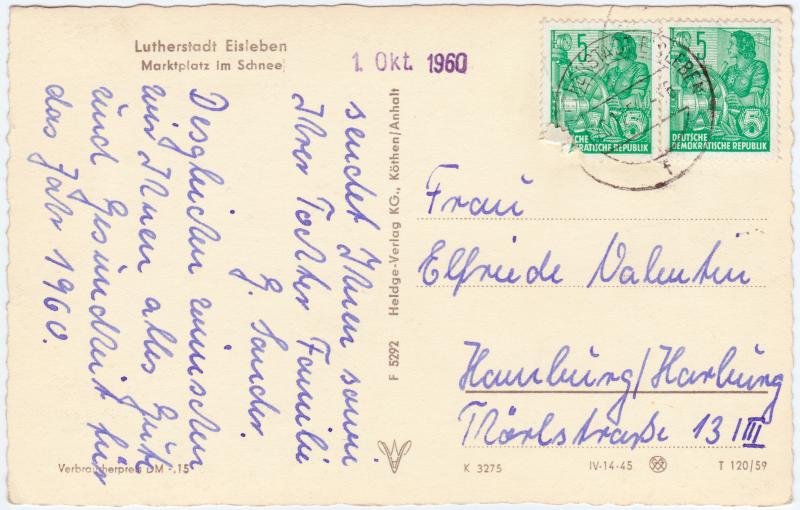 Lutherstadt Eisleben
Marktplatz im Schnee
1. Okt. 1960
5
5
DEUTSCHE
DEMOKRATISCHE REPUBLIK
5
5
DEUTSCHE
DEMOKRATISCHE REPUBLIK
sendet Ihnen sowie
Ihrer Tochter Familie
G. Sander.
Desgleichen wünschen
wir Ihnen alles Gute
und Gesundheit für
das Jahr 1960.
F 5292 Heldge-Verlag KG., Köthen/Anhalt
Frau
Elfriede Valentin
Hamburg/Harburg
Mörlstraße 13 III
Verbraucherpreis DM -,15
K 3275
IV-14-45
T 120/59